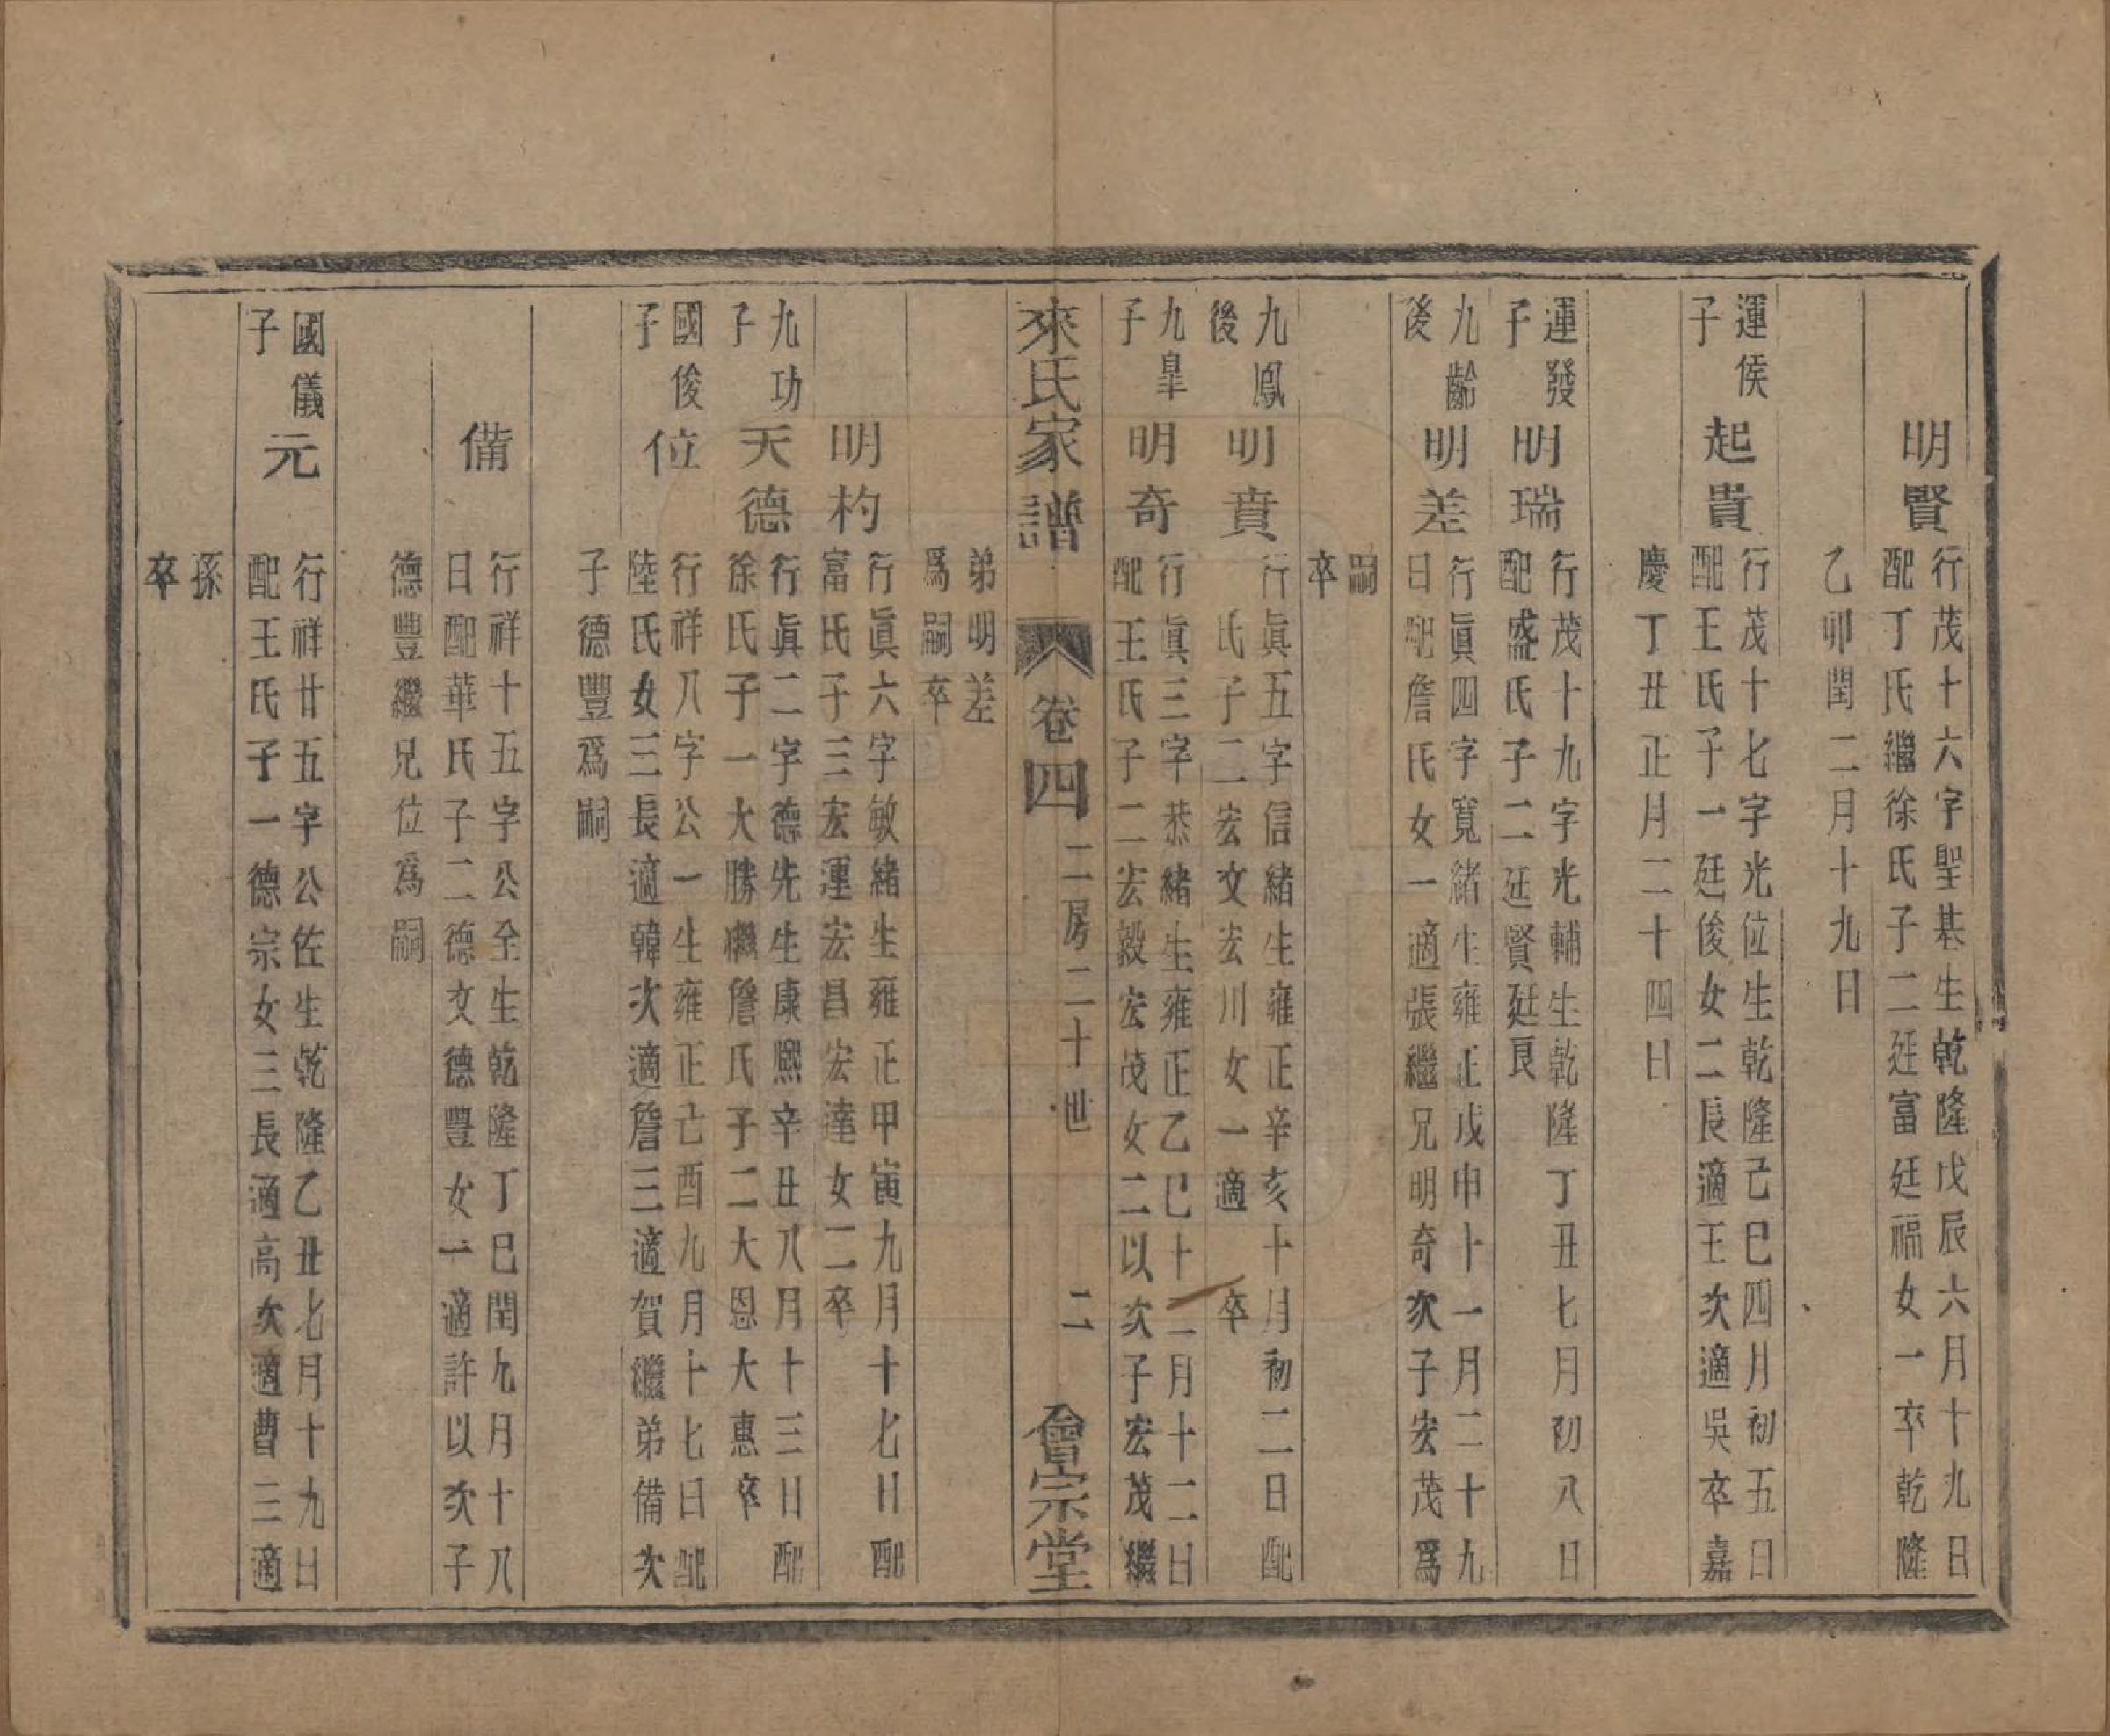 明賢
行茂十六字聖基生乾隆戊辰六月十九日
配丁氏繼徐氏子二廷富廷福女一卒乾隆
乙卯閏二月十九日
運侯
子
起貴
行茂十七字光位生乾隆己巳四月初五日
配王氏子一廷俊女二長適王次適吳卒嘉
慶丁丑正月二十四日
運發
子
明瑞
行茂十九字光輔生乾隆丁丑七月初八日
配盛氏子二廷賢廷良
九齡
後
明差
行眞四字寬緒生雍正戊申十一月二十九
日配詹氏女一適張繼兄明奇次子宏茂爲
嗣
卒
九鳳
後
明賁
行眞五字信緒生雍正辛亥十月初二日配
氏子二宏文宏川女一適 卒
九皐
子
明奇
行眞三字恭緒生雍正乙巳十二月十二日
配王氏子二宏毅宏茂女二以次子宏茂繼
來氏家譜 卷四 二房二十世 二 會宗堂
弟明差
爲嗣卒
明杓
行眞六字敏緒生雍正甲寅九月十七日配
富氏子三宏運宏昌宏達女二卒
九功
子
天德
行眞二字德先生康熙辛丑八月十三日配
徐氏子一大勝繼詹氏子二大恩大惠卒
國俊
子
位
行祥八字公一生雍正己酉九月十七日配
陸氏女三長適韓次適詹三適賀繼弟備次
子德豐爲嗣
備
行祥十五字公全生乾隆丁巳閏九月十八
日配華氏子二德文德豐女一適許以次子
德豐繼兄位爲嗣
國儀
子
元
行祥廿五字公佐生乾隆乙丑七月十九日
配王氏子一德宗女三長適高次適曹三適
孫
卒